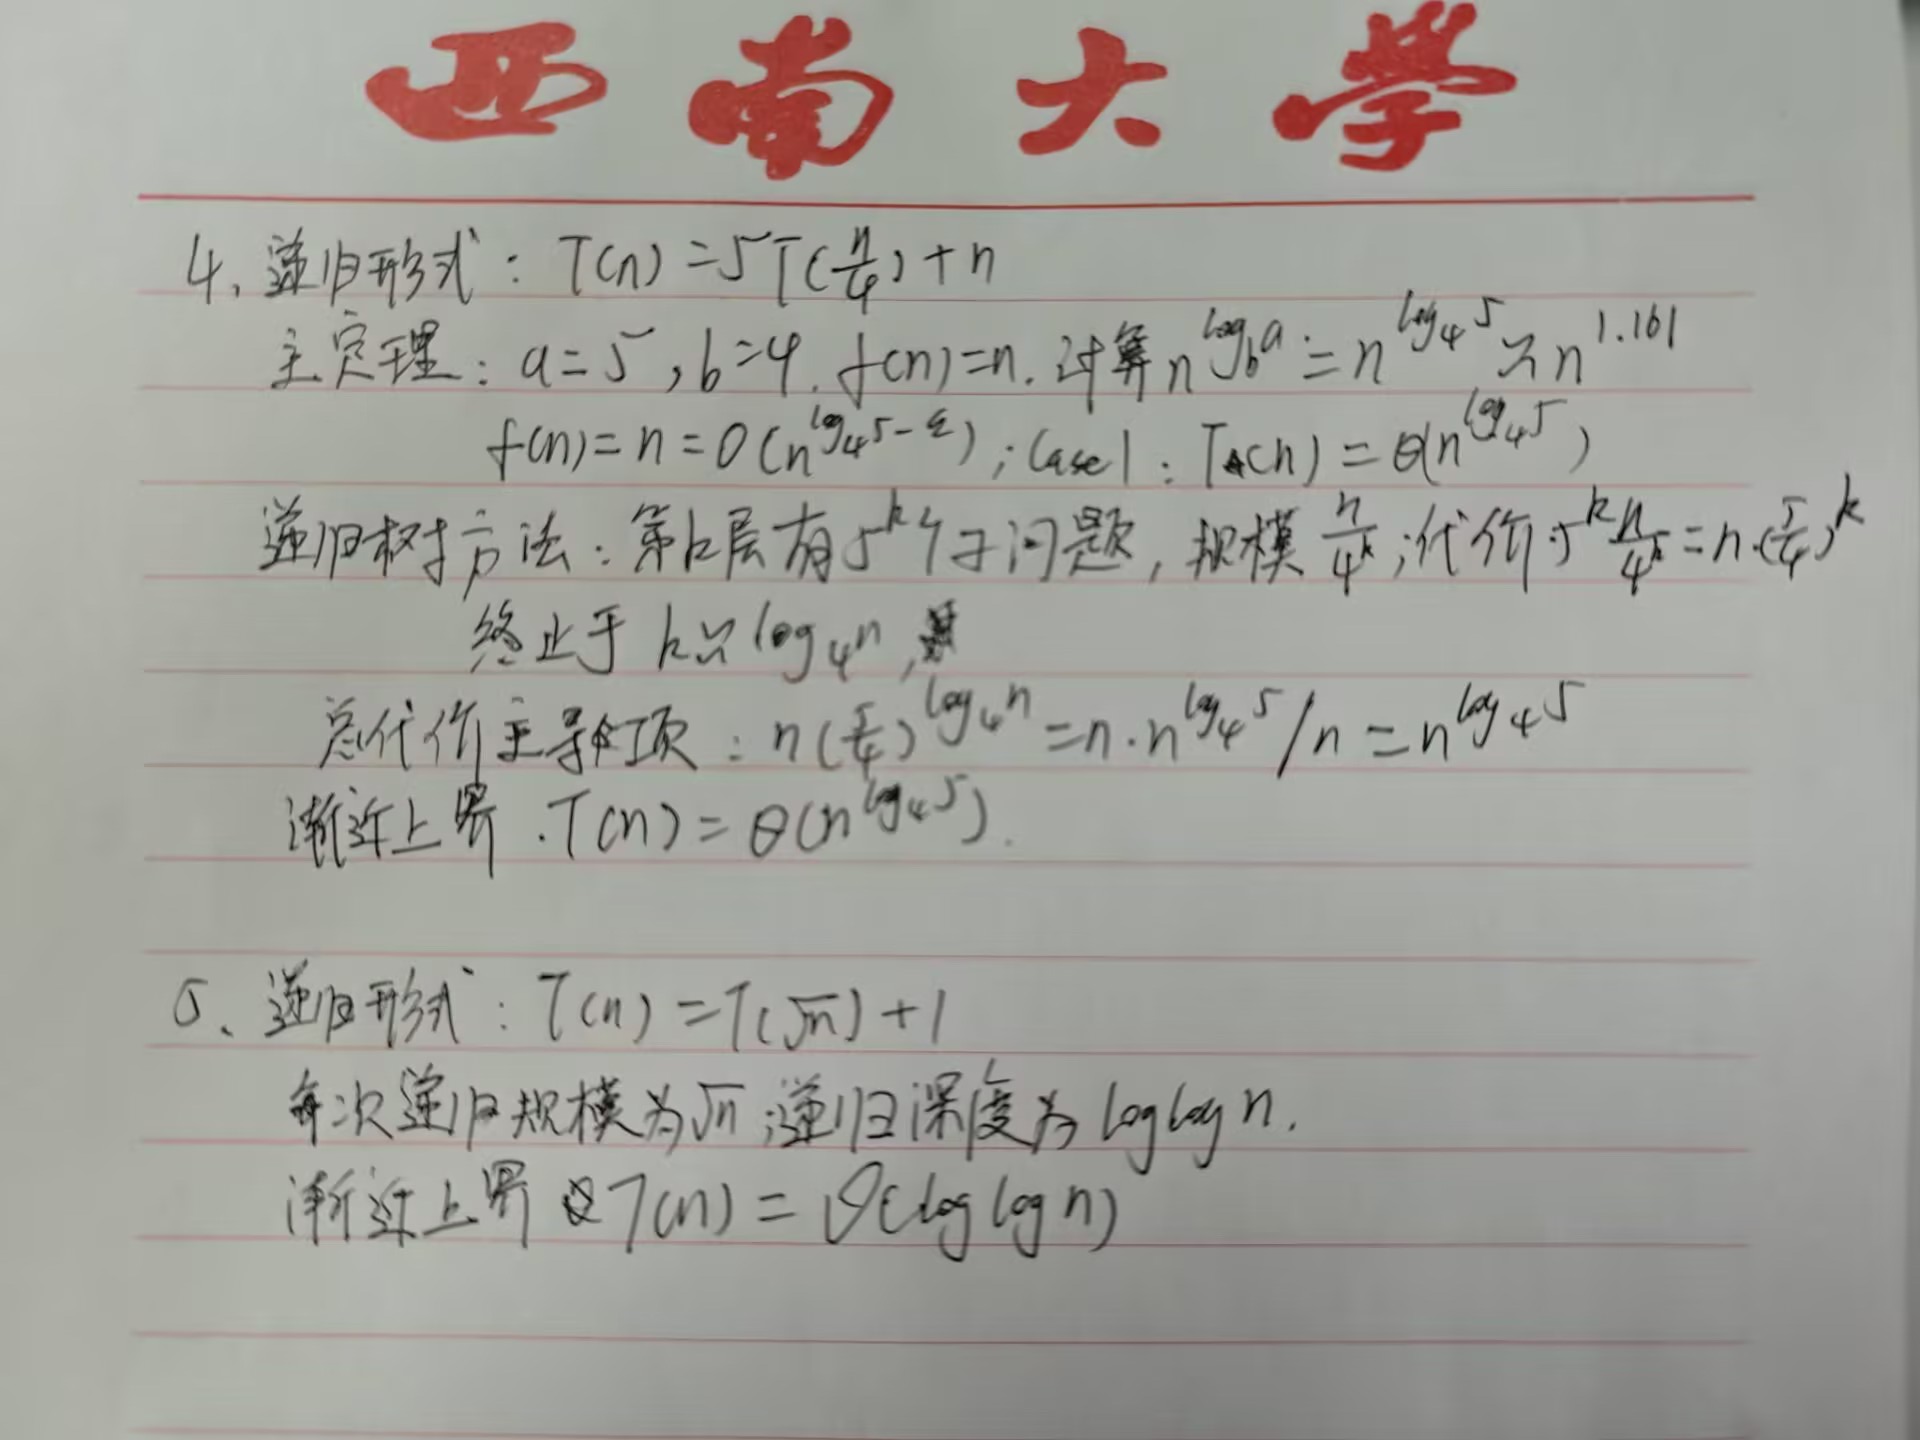 西南大学
4、递归形式：T(n)=5T(n/4)+n
主定理：a=5,b=4.f(n)=n.计算n^{log_b a}=n^{log_4 5}≈n^{1.161}
f(n)=n=O(n^{log_4 5-ε});Case1:T(n)=Θ(n^{log_4 5})
递归树方法：第k层有5^k个子问题,规模n/4^k;代价:5^k n/4^k=n·(5/4)^k
终止于k≈log_4 n,
总代价主导项：n(5/4)^{log_4 n}=n·n^{log_4 5}/n=n^{log_4 5}
渐近上界.T(n)=Θ(n^{log_4 5}).
5、递归形式：T(n)=T(√n)+1
每次递归规模为√n;递归深度为loglogn.
渐近上界T(n)=Θ(loglogn)